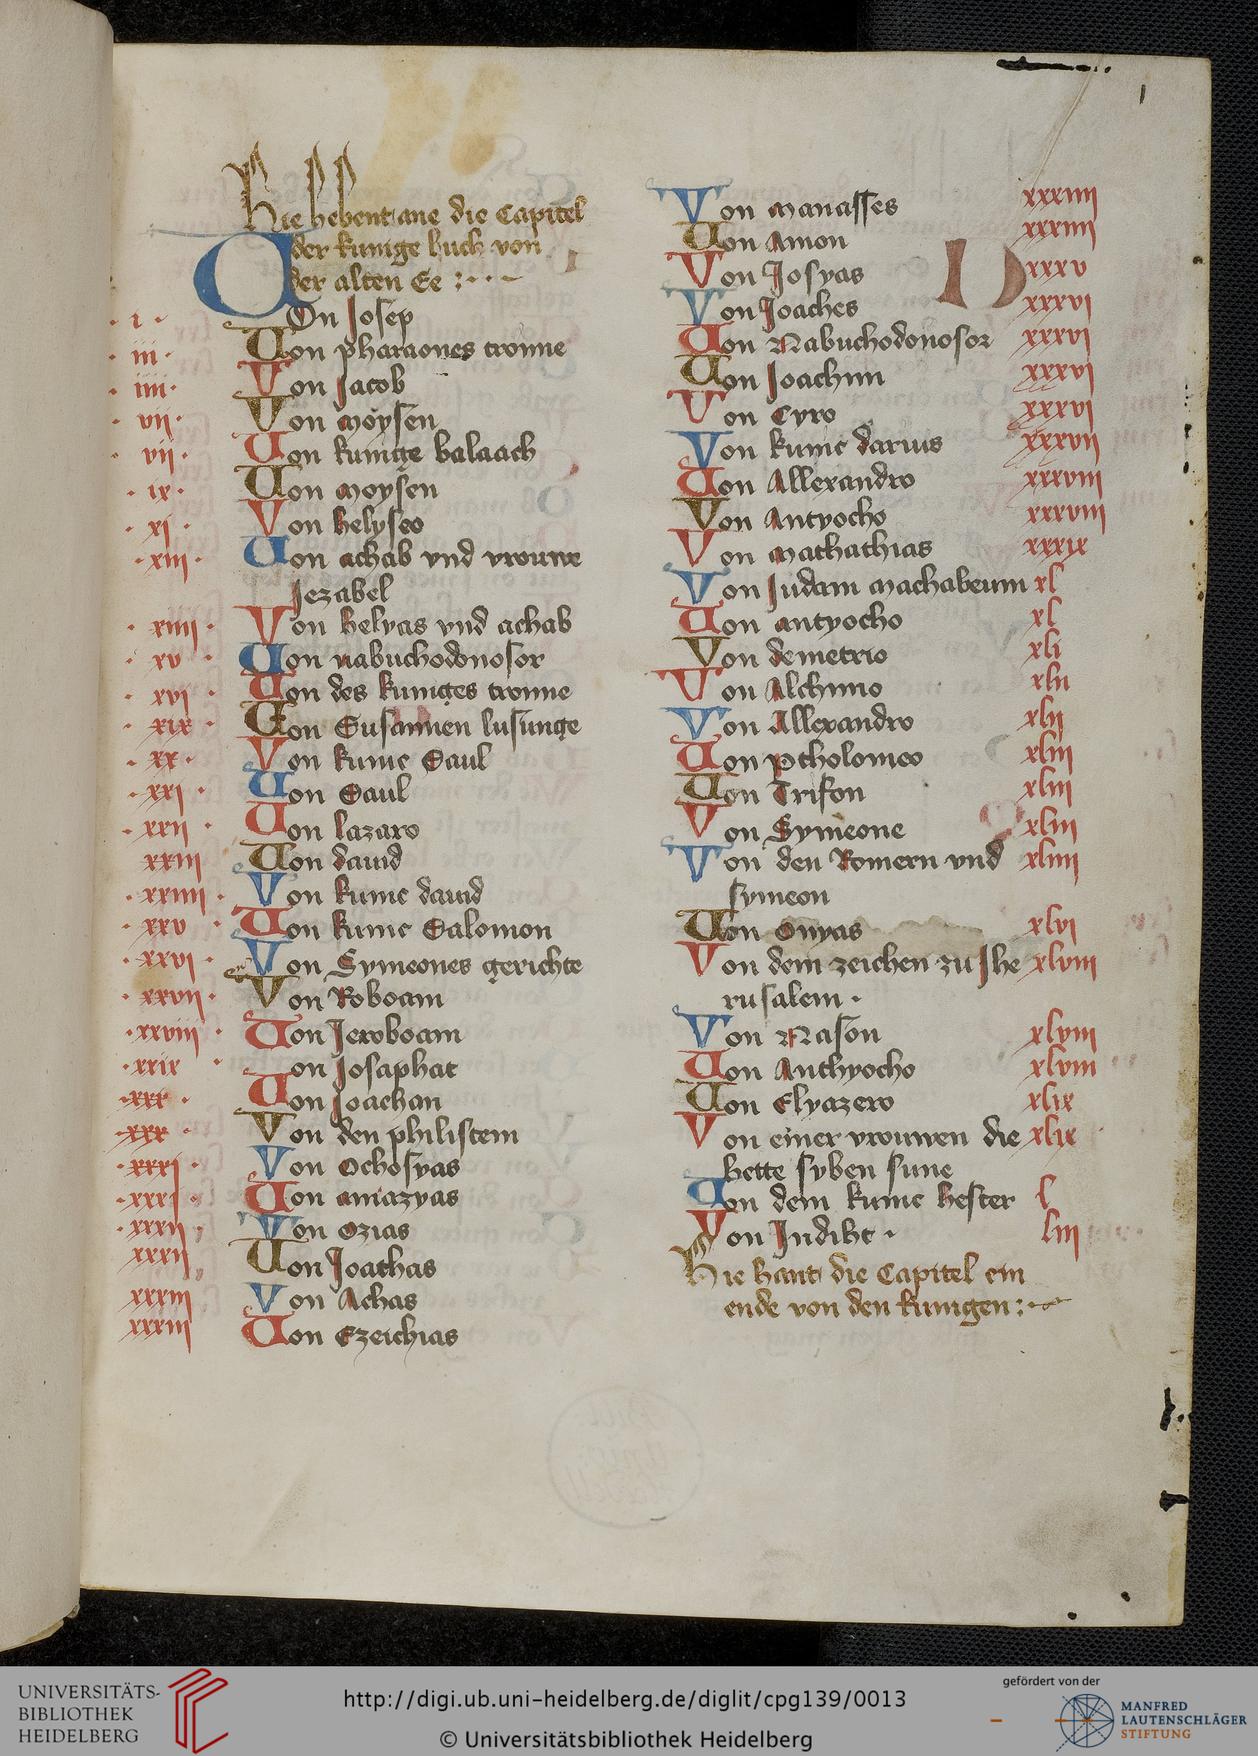 1
Hie hebent ane die Capitel
der kunige buch von
der alten Ee :
· i · Von Josep
· iii · Von pharaones tronne
· iiii · Von Jacob
· vii · Von moysen
· vii · Von kunige balaach
· ix · Von moysen
· xi · Von helyseo
· xiii · Von achab vnd vrouwe
Jezabel
· xiiii · Von helyas vnd achab
· xv · Von nabuchodonosor
· xvi · Von des kuniges tronne
· xix · Von Susannen lusunge
· xx · Von kunic Saul
· xxi · Von Saul
· xxii · Von lazaro
xxiii Von dauid
· xxiiii · Von kunic dauid
· xxv · Von kunic Salomon
· xxvi · Von Symeones gerichte
· xxvii · Von Roboam
· xxviii · Von Jeroboam
· xxix · Von Josaphat
· xxx · Von Joachan
· xxx · Von den philistein
· xxxi · Von Ochosyas
· xxxi · Von amazyas
· xxxii · Von Ozias
xxxii Von Joathas
xxxiii Von Achas
xxxiii Von Ezeichias
Von manasses xxxiiii
Von Amon xxxiiii
Von Josyas xxxv
Von Joaches xxxvi
Von Nabuchodonosor xxxvi
Von Joachim xxxvi
Von Cyro xxxvi
Von kunic darius xxxvii
Von Allexandro xxxviii
Von Antyocho xxxviii
Von mathathias xxxix
Von Judam machabeum xl
Von antyocho xl
Von demetrio xli
Von Alchimo xlii
Von Allexandro xlii
Von ptholomeo xliii
Von Trifon xliii
Von Symeone xliii
Von den Romern vnd xliiii
symeon
Von Onyas xlvi
Von dem zeichen zu Jhe xlviii
rusalem ·
Von Nason xlviii
Von Anthyocho xlviii
Von Elyazero xlix
Von einer vrouwen die xlix
hette syben sune
Von dem kunic hester l
Von Judiht · liii
Hie hant die Capitel ein
ende von den kunigen :
UNIVERSITÄTS-
BIBLIOTHEK
HEIDELBERG
http://digi.ub.uni-heidelberg.de/diglit/cpg139/0013
© Universitätsbibliothek Heidelberg
gefördert von der
MANFRED
LAUTENSCHLÄGER
STIFTUNG